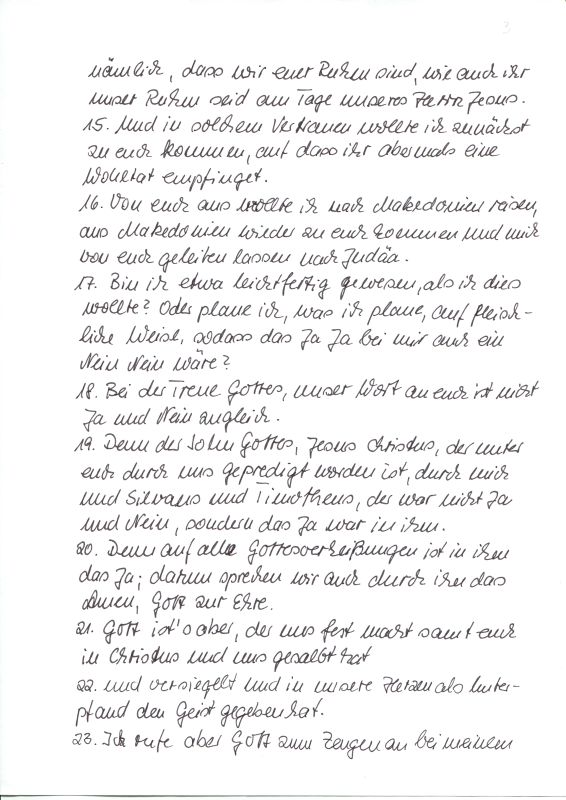 3
nämlich, dass wir euer Ruhm sind, wie auch ihr
unser Ruhm seid am Tage unseres Herrn Jesus.
15. Und in solchem Vertrauen wollte ich zunächst
zu euch kommen, auf dass ihr abermals eine
Wohltat empfinget.
16. Von euch aus wollte ich nach Makedonien reisen,
aus Makedonien wieder zu euch kommen und mich
von euch geleiten lassen nach Judäa.
17. Bin ich etwa leichtfertig gewesen, als ich dies
wollte? Oder plane ich, was ich plane, auf fleisch-
liche Weise, sodass das Ja Ja bei mir auch ein
Nein Nein wäre?
18. Bei der Treue Gottes, unser Wort an euch ist nicht
Ja und Nein zugleich.
19. Denn der Sohn Gottes, Jesus Christus, der unter
euch durch uns gepredigt worden ist, durch mich
und Silvanus und Timotheus, der war nicht Ja
und Nein, sondern das Ja war in ihm.
20. Denn auf alle Gottesverheißungen ist in ihm
das Ja; darum sprechen wir auch durch ihn das
Amen, Gott zur Ehre.
21. Gott ist's aber, der uns fest macht samt euch
in Christus und uns gesalbt hat
22. und versiegelt und in unsere Herzen als Unter-
pfand den Geist gegeben hat.
23. Ich rufe aber Gott zum Zeugen an bei meinem